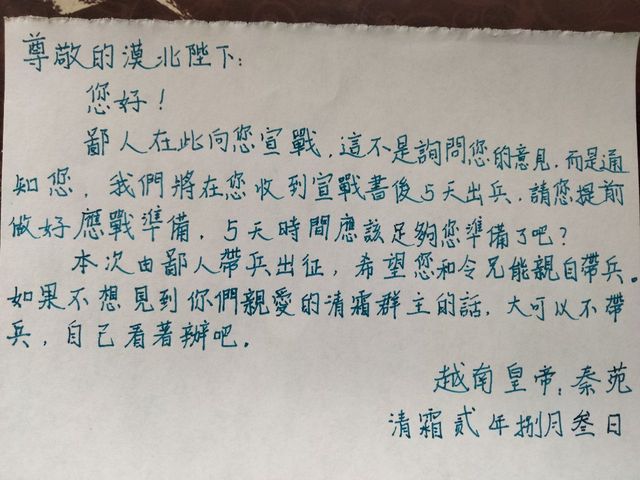 尊敬的漠北陛下：
您好！
鄙人在此向您宣戰，這不是詢問您的意見，而是通
知您，我們將在您收到宣戰書後5天出兵，請您提前
做好應戰準備，5天時間應該足夠您準備了吧？
本次由鄙人帶兵出征，希望您和令兄能親自帶兵。
如果不想見到你們親愛的清霜群主的話，大可以不帶
兵，自己看著辦吧。
越南皇帝：秦苑
清霜貳年捌月叁日